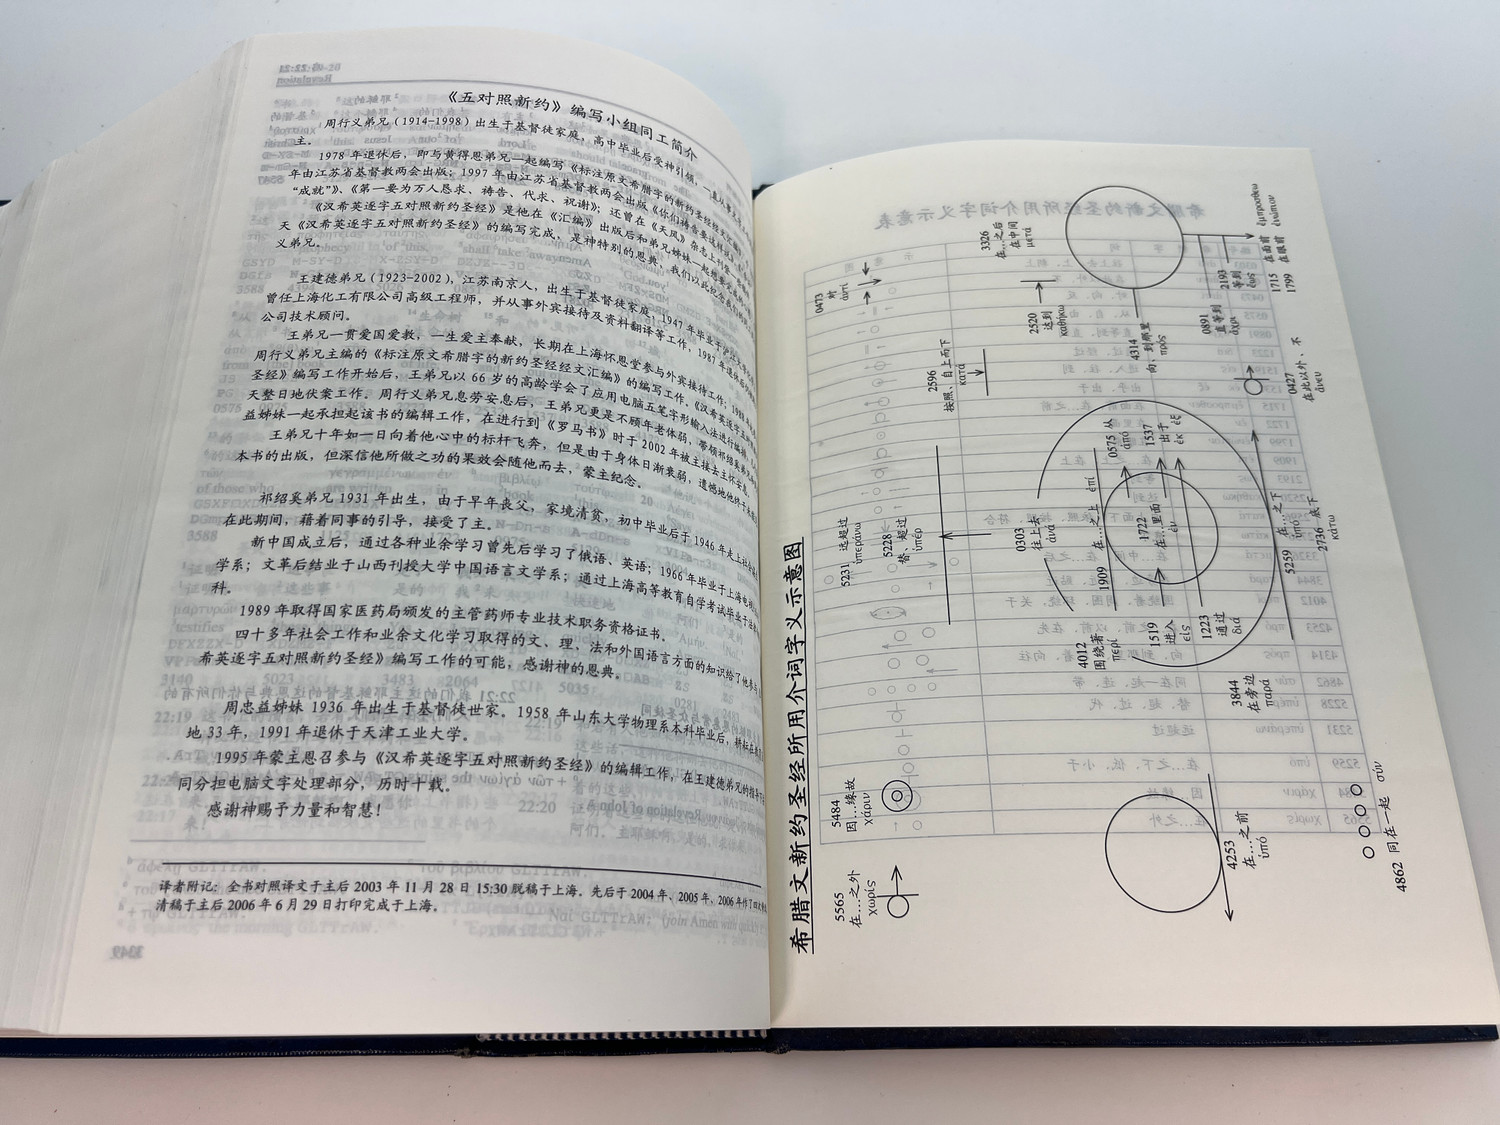 《五对照新约》编写小组同工简介
周行义弟兄（1914-1998）出生于基督徒家庭，高中毕业后受神引领，一直从事
主。
1978 年退休后，即与黄得恩弟兄一起编写《标注原文希腊字的新约圣经经文汇编》
年由江苏省基督教两会出版；1997 年由江苏省基督教两会出版《你们祷告要这样说
“成就”》、《第一要为万人恳求、祷告、代求、祝谢》；还曾在《天风》杂志上刊登
《汉希英逐字五对照新约圣经》是他在《汇编》出版后和弟兄姊妹一起想要完成的
天《汉希英逐字五对照新约圣经》的编写完成，是神特别的恩典，我们以此纪念我们
义弟兄。
王建德弟兄（1923-2002），江苏南京人，出生于基督徒家庭，1947 年毕业于沪江大学
曾任上海化工有限公司高级工程师，并从事外宾接待及资料翻译等工作，1987 年退休
公司技术顾问。
王弟兄一贯爱国爱教，一生爱主奉献，长期在上海怀恩堂参与外宾接待工作，1988
周行义弟兄主编的《标注原文希腊字的新约圣经经文汇编》的编写工作。《汉希英逐字五对照
圣经》编写工作开始后，王弟兄以 66 岁的高龄学会了应用电脑五笔字形输入法进行编辑，
天整日地伏案工作。周行义弟兄息劳安息后，王弟兄更是不顾年老体弱，带领祁绍奚弟兄
益姊妹一起承担起该书的编辑工作，在进行到《罗马书》时于 2002 年被主接去主怀安息，
王弟兄十年如一日向着他心中的标杆飞奔，但是由于身体日渐衰弱，遗憾地他终于未能
本书的出版，但深信他所做之功的果效会随他而去，蒙主纪念。
祁绍奚弟兄 1931 年出生，由于早年丧父，家境清贫，初中毕业后于 1946 年走上社会
在此期间，藉着同事的引导，接受了主。
新中国成立后，通过各种业余学习曾先后学习了俄语、英语；1966 年毕业于上海电视
学系；文革后结业于山西刊授大学中国语言文学系；通过上海高等教育自学考试毕业于法律
科。
1989 年取得国家医药局颁发的主管药师专业技术职务资格证书。
四十多年社会工作和业余文化学习取得的文、理、法和外国语言方面的知识给了他参与
希英逐字五对照新约圣经》编写工作的可能，感谢神的恩典。
周忠益姊妹 1936 年出生于基督徒世家。1958 年山东大学物理系本科毕业后，耕耘在教育
地 33 年，1991 年退休于天津工业大学。
1995 年蒙主恩召参与《汉希英逐字五对照新约圣经》的编辑工作，在王建德弟兄的指导下
同分担电脑文字处理部分，历时十载。
感谢神赐予力量和智慧！
译者附记：全书对照译文于主后 2003 年 11 月 28 日 15:30 脱稿于上海。先后于 2004 年、2005 年、2006 年作了
清稿于主后 2006 年 6 月 29 日打印完成于上海。
希腊文新约圣经所用介词字义示意图
5565
在…之外
χωρίς
5484
因…缘故
χάριν
5231 远超过
ὑπεράνω
5228
替、超过
ὑπέρ
0473
对
ἀντί
2596
按照、自上而下
κατά
3326
在…之后
在中间
μετά
0303
往上去
ἀνά
2520
达到
καθήκω
4012
围绕着
περί
1909 在…之上 ἐπί
0575 从
ἀπό
1722
在…里面
ἐν
1537
出于
ἐκ ἐξ
1519
进入
εἰς
1223
通过
διά
4314
向、到哪里
πρός
0891
直等到
ἄχρι
2193
等到
ἕως
1715 在面前 ἔμπροσθεν
1799 在眼前 ἐνώπιον
0427
在此以外、不
ἄνευ
3844
在旁边
παρά
5259 在…之下
ὑπό
2736 底下
κάτω
4253
在…之前
ὑπό
4862 同在一起 σύν